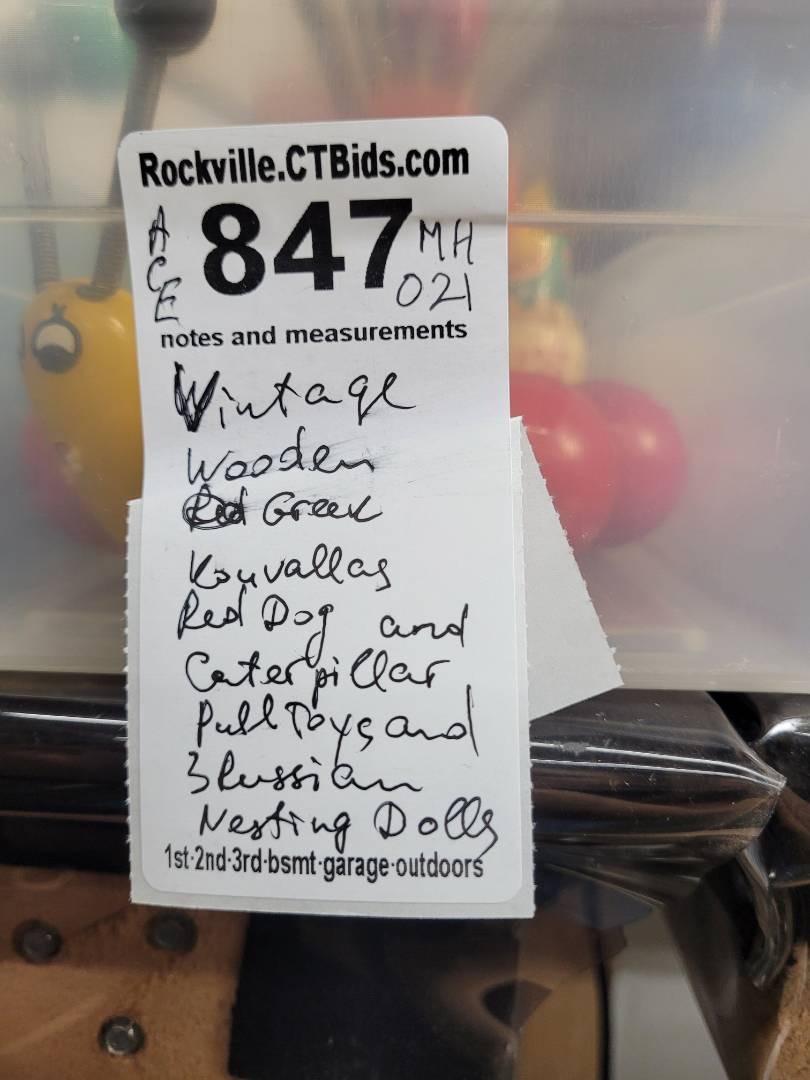 Rockville.CTBids.com
ACE 847 MH 021
notes and measurements
Vintage
Wooden
Red Greek
Kouvallas
Red Dog and
Caterpillar
Pull Toys and
3 Russian
Nesting Dolls
1st·2nd·3rd·bsmt·garage·outdoors